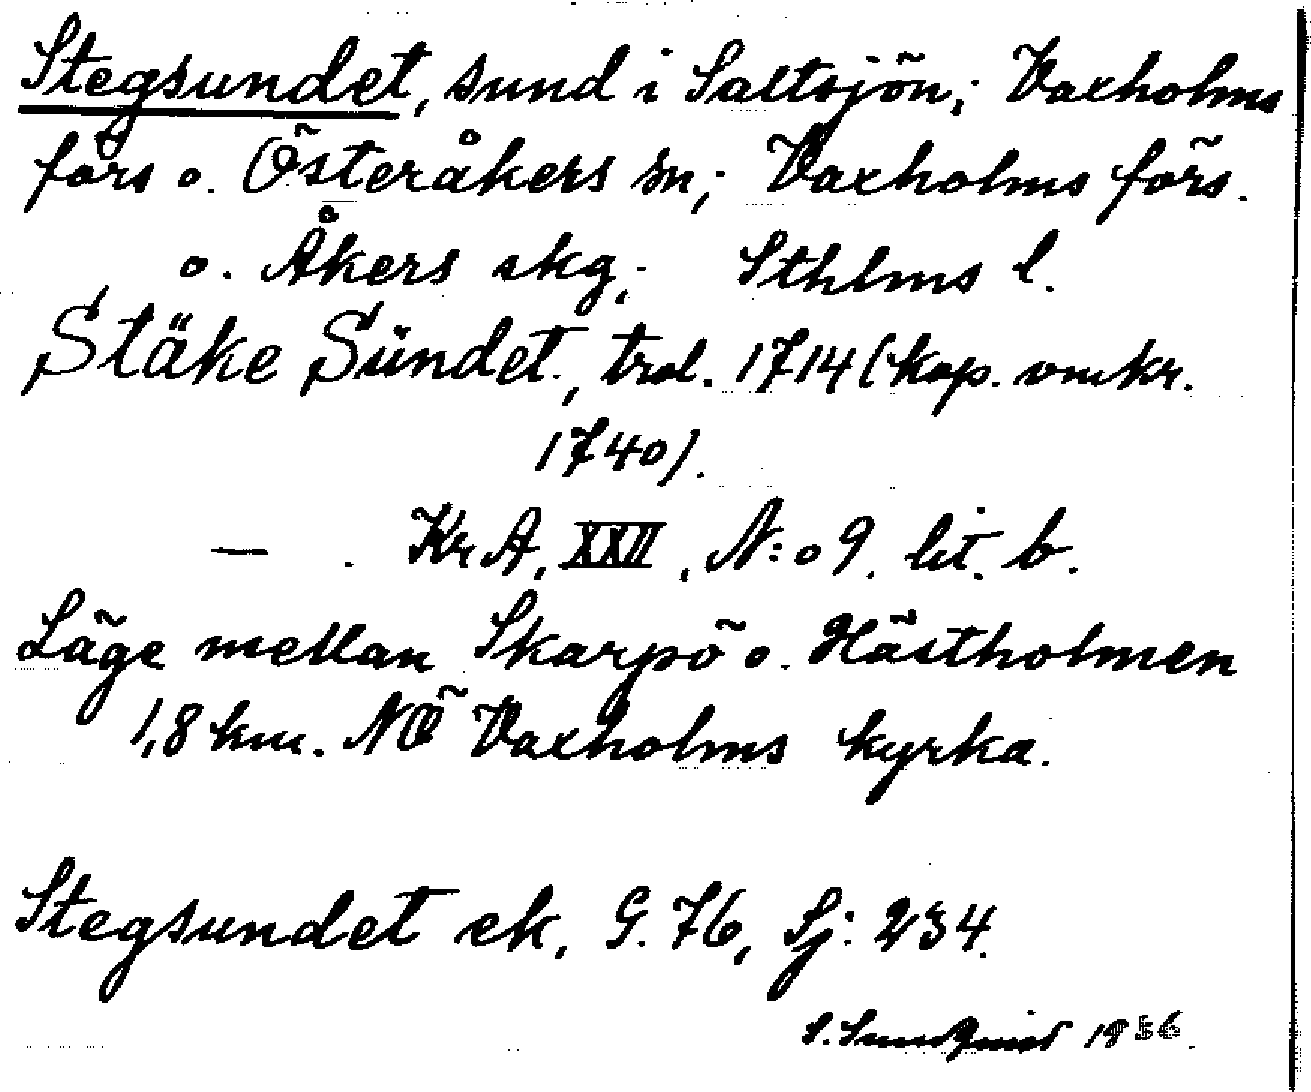 Stegsundet, sund i Saltsjön; Vaxholms
förs o. Österåkers sn; Vaxholms förs.
o. Åkers skg; Sthlms l.
Stäke Sündet, trol. 1714 (kop. omkr.
1740).
— . KrA, XXII, N:o 9. lit. b.
Läge mellan Skarpö o. Hästholmen
1,8 km. NÖ Vaxholms kyrka.
Stegsundet ek, G. 76, Sj: 234.
S. Sundquist 1936.